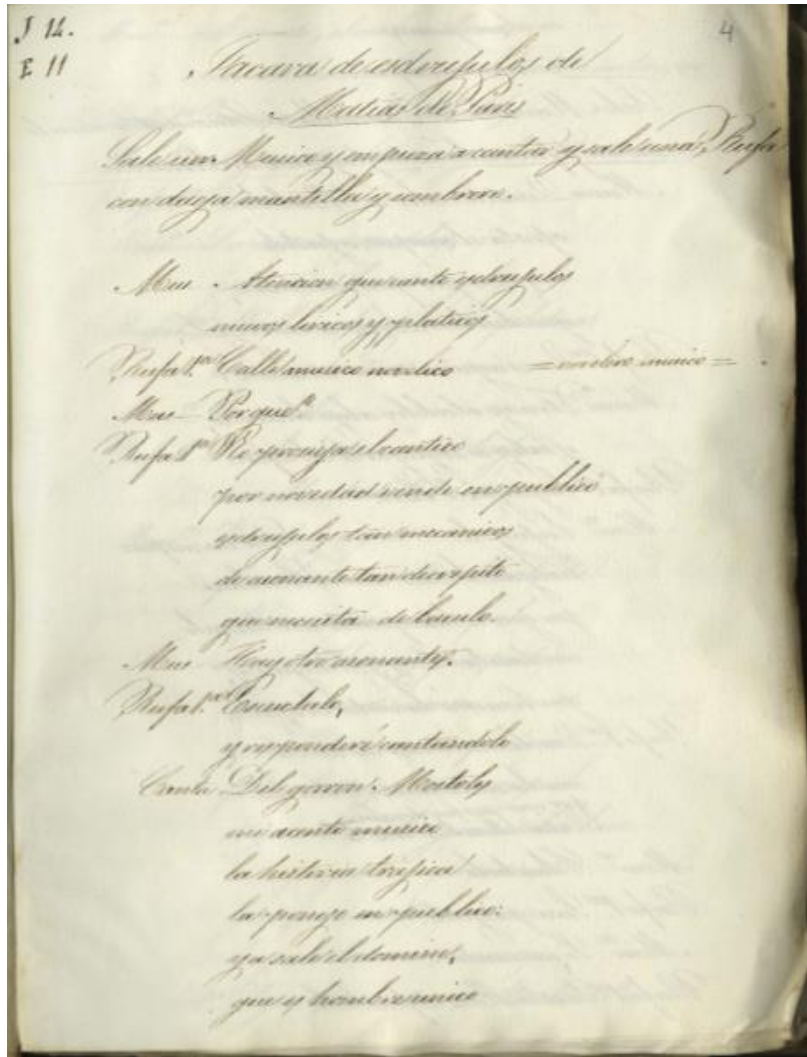 J 12.
4
E 11
Jacara de esdrujulos de
Matias de
Sale un Musico y empieza a cantar y sale una Rufa
con daga mantilla y sombrero.
Mus - Atencion que cante esdrujulos
nuevos liricos y
Rufa 1ª Calle musico = musico =
Mus - Porque?
Rufa 1ª No prosiga el cantico
por novedad vende en publico
esdrujulos tan mecanicos
de asonante tan decrepito
que necesita de baculo.
Mus - Hay otro asonante.
Rufa 1ª Escuchelo,
y respondere cantandolo
Canta Del gorron Mostoles
mi acento musico
la historia
la pongo en publico:
ya sale el domine,
que es hombre unico